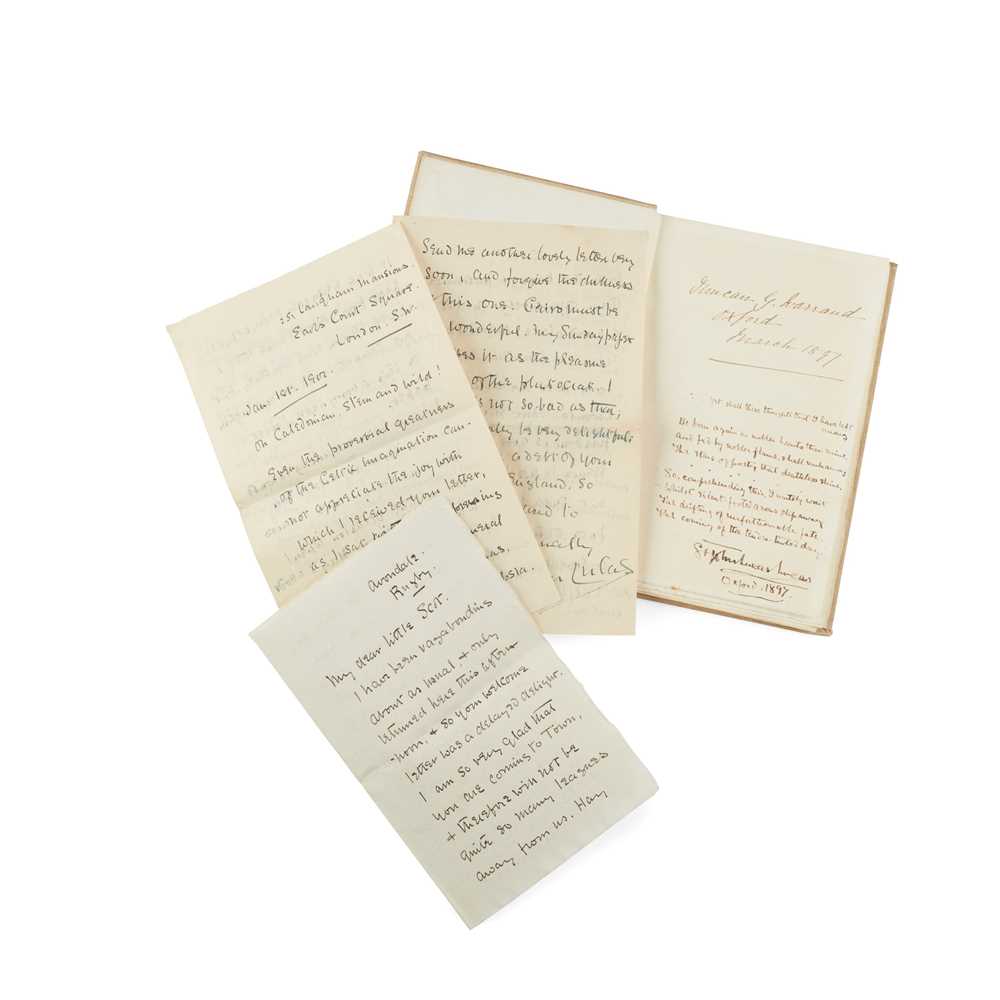 25. Langham Mansions.
Earl's Court Square.
London. S.W.
Jan. 1st. 1902.
Oh Caledonian, Stern and wild!
Even the proverbial greatness
of the Celtic imagination can-
not appreciate the joy with
which I received your letter,
as I sat
Send me another lovely letter very
soon, and forgive the dullness
this one. Cairo must be
wonderful. My Sunday paper
it as the pleasure
of the plutocrat. I
not so bad as that,
be very delightful
a dert of your
England. So
and to
Lucas
Avondale.
Rugby.
My dear little Scot.
I have been vagabonding
about as usual, & only
returned here this after-
noon, & so your welcome
letter was a delayed delight.
I am so very glad that
you are coming to Town,
& therefore will not be
quite so many leagues
away from us. Hay
Duncan G. Warrand
Oxford
March 1897
Yet shall those thoughts that I have left
among
Be born again in nobler hearts than mine,
and fed by nobler flame, shall
This of poetry that deathless shine.
So, comprehending this, I wait
Whilst silent-footed
The drifting of unfashionable fate
the coming of the day.
St John Welles Lucas
Oxford. 1897.